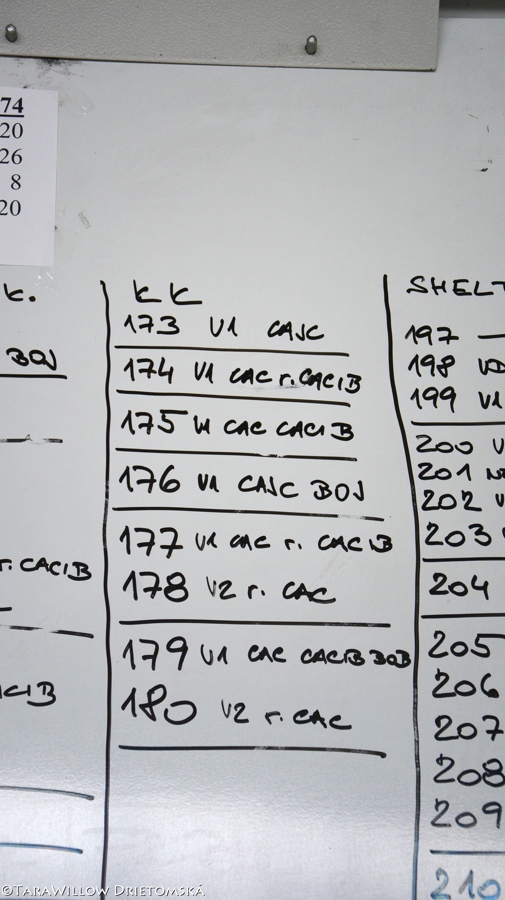 74
20
26
8
20
K.
BOJ
r. CACIB
CIB
KK
173 V1 CAJC
174 V1 CAC r. CACIB
175 V1 CAC CACIB
176 V1 CAJC BOJ
177 V1 CAC r. CACIB
178 V2 r. CAC
179 V1 CAC CACIB BOB
180 V2 r. CAC
SHELT
197 —
198 VD
199 V1
200 V
201
202 V
203
204
205
206
207
208
209
210
©TaraWillow Drietomská